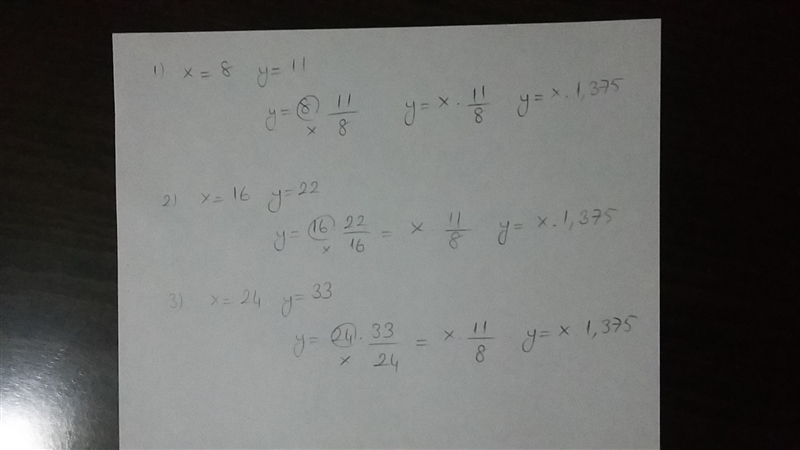 1) x = 8 y = 11
y = 8 11/8 y = x · 11/8 y = x · 1,375
x
2) x = 16 y = 22
y = 16 22/16 = x 11/8 y = x · 1,375
x
3) x = 24 y = 33
y = 24 · 33/24 = x · 11/8 y = x 1,375
x